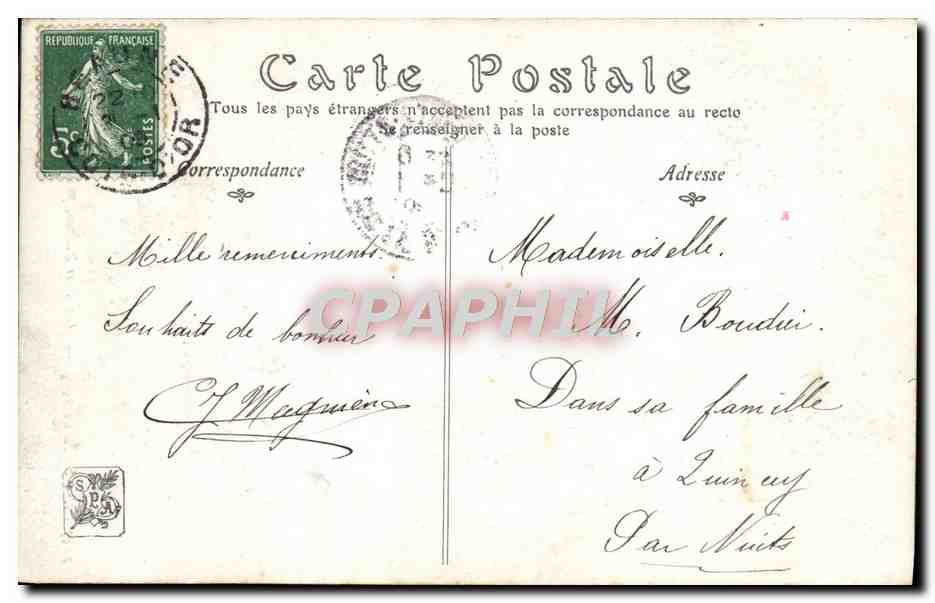 REPUBLIQUE FRANÇAISE
5c
POSTES
22
COTE-D'OR
Carte Postale
Tous les pays étrangers n'acceptent pas la correspondance au recto
Se renseigner à la poste
Correspondance
Adresse
A
Mille remerciments.
Souhaits de bonheur
Mademoiselle.
M. Boudier.
Dans sa famille
à Quincey
Par Nuits
CPAPHIL
SPA